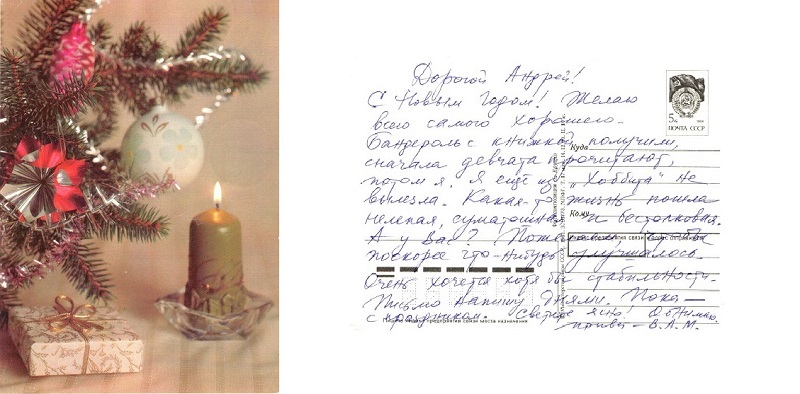 Дорогой Андрей!
С Новым годом! Желаю
всего самого хорошего.
Бандероль с книжкой получили,
сначала девчата прочитают,
потом я. Я ещё из "Хоббита" не
вылезла. Какая-то жизнь пошла
нелепая, суматошная и бестолковая.
А у Вас?
поскорее что-нибудь улучшалось.
Очень хочется хотя бы стабильности.
Письмо напишу днями. Пока —
с праздником. Светлое Обнимаю.
привет — В.А.М.
5к
ПОЧТА СССР
Куда
Кому
предприятия связи места назначения